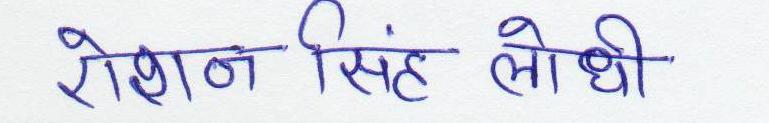 रोशन सिंह लोधी